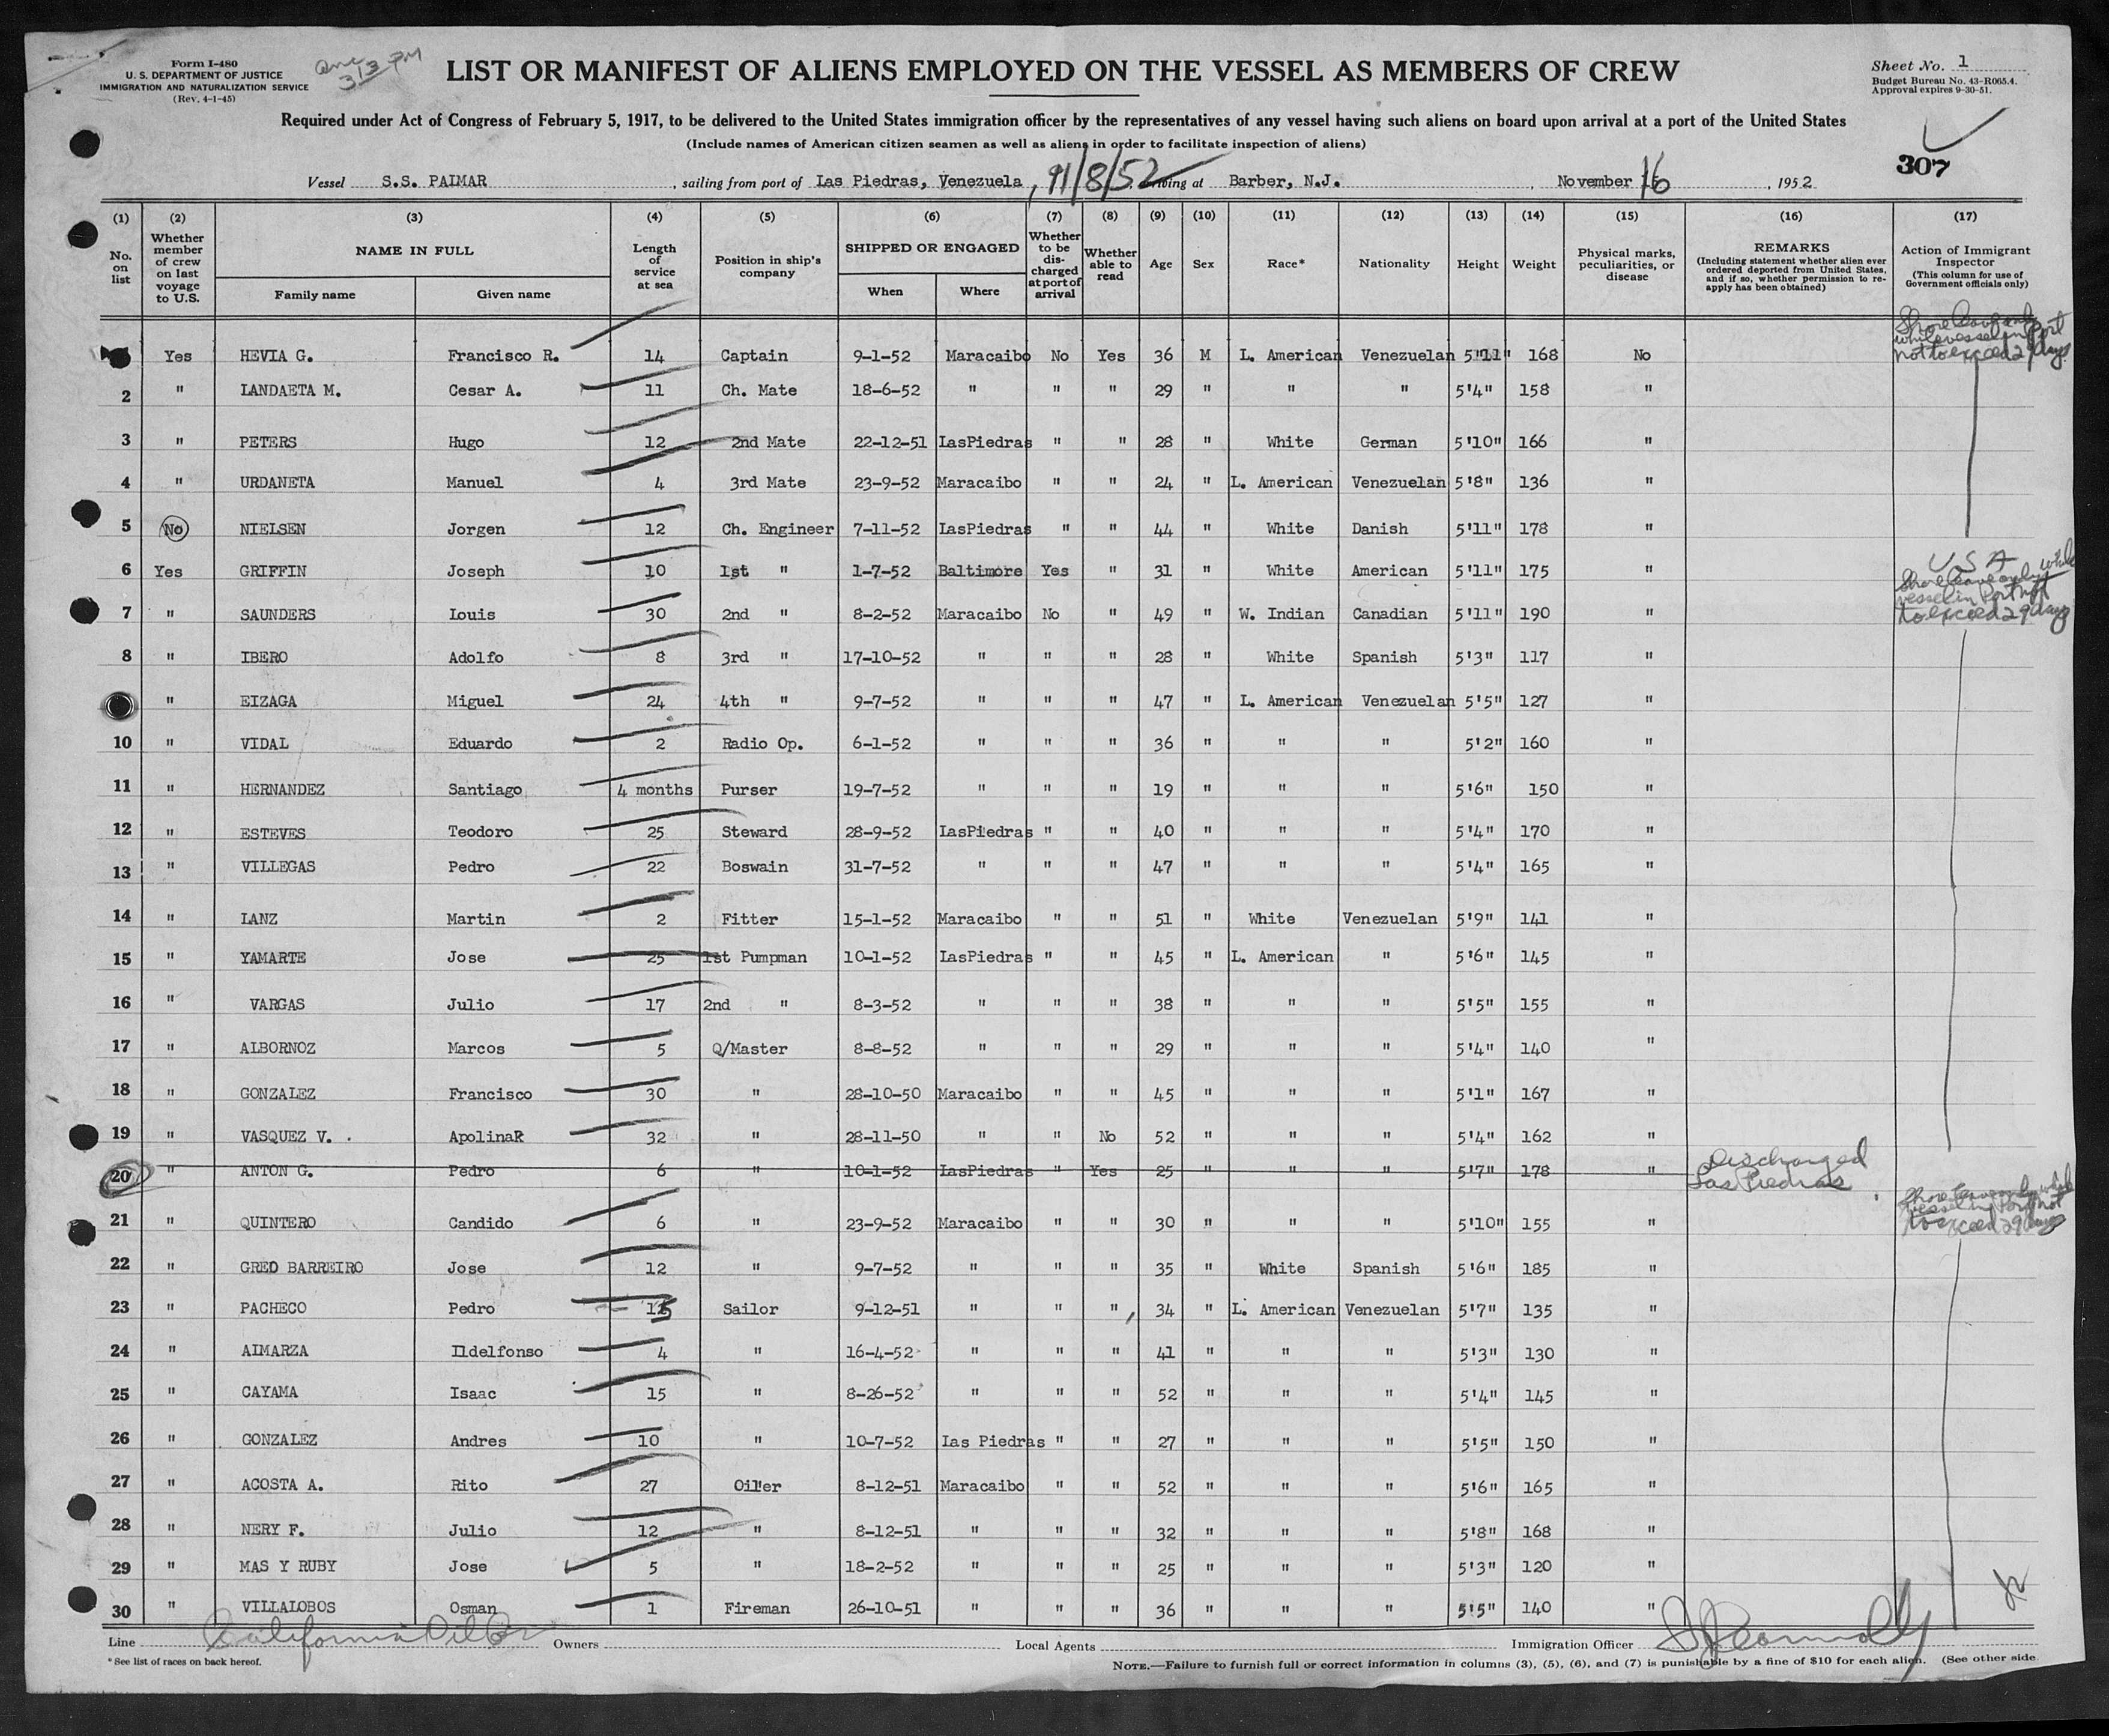 Form I-480
U. S. DEPARTMENT OF JUSTICE
IMMIGRATION AND NATURALIZATION SERVICE
(Rev. 4-1-45)
313 PM
LIST OR MANIFEST OF ALIENS EMPLOYED ON THE VESSEL AS MEMBERS OF CREW
Sheet No. 1
Budget Bureau No. 43-R065.4.
Approval expires 9-30-51.
Required under Act of Congress of February 5, 1917, to be delivered to the United States immigration officer by the representatives of any vessel having such aliens on board upon arrival at a port of the United States
(Include names of American citizen seamen as well as aliens in order to facilitate inspection of aliens)
307
Vessel S.S. PAIMAR, sailing from port of Las Piedras, Venezuela, 11/8/52 arriving at Barber, N.J., November 16, 1952
(1) (2) (3) (4) (5) (6) (7) (8) (9) (10) (11) (12) (13) (14) (15) (16) (17)
No. on list
Whether member of crew on last voyage to U.S.
NAME IN FULL
Family name Given name
Length of service at sea
Position in ship's company
SHIPPED OR ENGAGED
When Where
Whether to be discharged at port of arrival
Whether able to read
Age
Sex
Race*
Nationality
Height
Weight
Physical marks, peculiarities, or disease
REMARKS
(Including statement whether alien ever ordered deported from United States, and if so, whether permission to re-apply has been obtained)
Action of Immigrant Inspector
(This column for use of Government officials only)
Shore leave only while vessel in Port not to exceed 29 days
Yes HEVIA G. Francisco R. 14 Captain 9-1-52 Maracaibo No Yes 36 M L. American Venezuelan 5'11" 168 No
2 " LANDAETA M. Cesar A. 11 Ch. Mate 18-6-52 " " " 29 " " " 5'4" 158 "
3 " PETERS Hugo 12 2nd Mate 22-12-51 LasPiedras " " 28 " White German 5'10" 166 "
4 " URDANETA Manuel 4 3rd Mate 23-9-52 Maracaibo " " 24 " L. American Venezuelan 5'8" 136 "
5 No NIELSEN Jorgen 12 Ch. Engineer 7-11-52 LasPiedras " " 44 " White Danish 5'11" 178 "
6 Yes GRIFFIN Joseph 10 1st " 1-7-52 Baltimore Yes " 31 " White American 5'11" 175 " USA
7 " SAUNDERS Louis 30 2nd " 8-2-52 Maracaibo No " 49 " W. Indian Canadian 5'11" 190 " Shore leave only while vessel in Port not to exceed 29 days
8 " IBERO Adolfo 8 3rd " 17-10-52 " " " 28 " White Spanish 5'3" 117 "
" EIZAGA Miguel 24 4th " 9-7-52 " " " 47 " L. American Venezuelan 5'5" 127 "
10 " VIDAL Eduardo 2 Radio Op. 6-1-52 " " " 36 " " " 5'2" 160 "
11 " HERNANDEZ Santiago 4 months Purser 19-7-52 " " " 19 " " " 5'6" 150 "
12 " ESTEVES Teodoro 25 Steward 28-9-52 LasPiedras " " 40 " " " 5'4" 170 "
13 " VILLEGAS Pedro 22 Boswain 31-7-52 " " " 47 " " " 5'4" 165 "
14 " LANZ Martin 2 Fitter 15-1-52 Maracaibo " " 51 " White Venezuelan 5'9" 141 "
15 " YAMARTE Jose 25 1st Pumpman 10-1-52 LasPiedras " " 45 " L. American " 5'6" 145 "
16 " VARGAS Julio 17 2nd " 8-3-52 " " " 38 " " " 5'5" 155 "
17 " ALBORNOZ Marcos 5 Q/Master 8-8-52 " " " 29 " " " 5'4" 140 "
18 " GONZALEZ Francisco 30 " 28-10-50 Maracaibo " " 45 " " " 5'1" 167 "
19 " VASQUEZ V. . ApolinaR 32 " 28-11-50 " " No 52 " " " 5'4" 162 "
20 " ANTON G. Pedro 6 " 10-1-52 LasPiedras " Yes 25 " " " 5'7" 178 " Discharged Las Piedras
21 " QUINTERO Candido 6 " 23-9-52 Maracaibo " " 30 " " " 5'10" 155 " Shore leave only while vessel in Port not to exceed 29 days
22 " GRED BARREIRO Jose 12 " 9-7-52 " " " 35 " White Spanish 5'6" 185 "
23 " PACHECO Pedro 15 Sailor 9-12-51 " " " 34 " L. American Venezuelan 5'7" 135 "
24 " AIMARZA Ildelfonso 4 " 16-4-52 " " " 41 " " " 5'3" 130 "
25 " CAYAMA Isaac 15 " 8-26-52 " " " 52 " " " 5'4" 145 "
26 " GONZALEZ Andres 10 " 10-7-52 Las Piedras " " 27 " " " 5'5" 150 "
27 " ACOSTA A. Rito 27 Oiler 8-12-51 Maracaibo " " 52 " " " 5'6" 165 "
28 " NERY F. Julio 12 " 8-12-51 " " " 32 " " " 5'8" 168 "
29 " MAS Y RUBY Jose 5 " 18-2-52 " " " 25 " " " 5'3" 120 "
30 " VILLALOBOS Osman 1 Fireman 26-10-51 " " " 36 " " " 5'5" 140 "
Line California Oil Co Owners Local Agents Immigration Officer
* See list of races on back hereof.
NOTE.—Failure to furnish full or correct information in columns (3), (5), (6), and (7) is punishable by a fine of $10 for each alien. (See other side